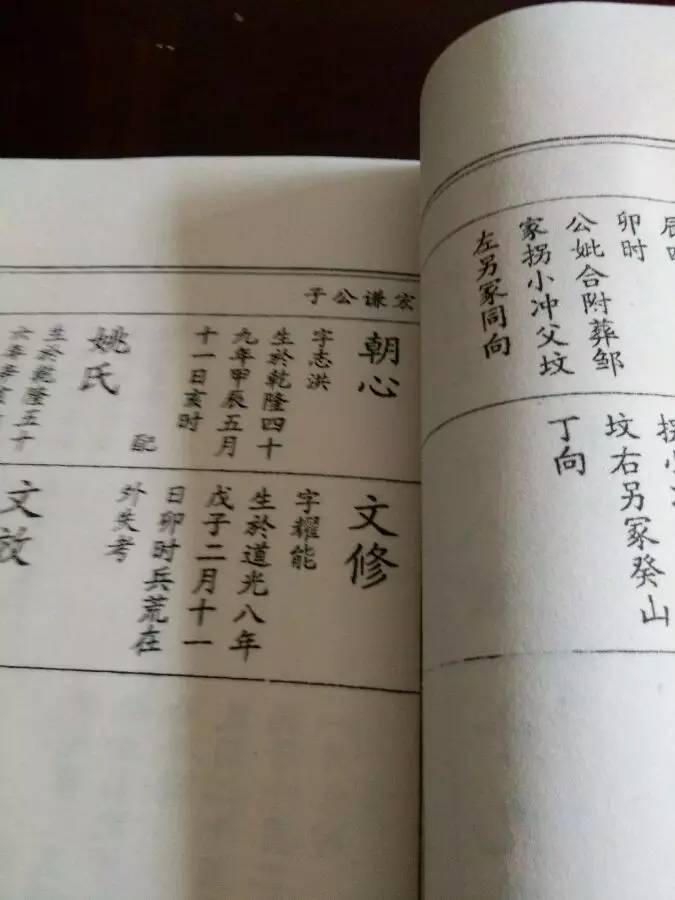 卯时
公妣合附葬邹
家拐小冲父坟
左另冢同向
坟右另冢癸山
丁向
宏谦公子
朝心
字志洪
生於乾隆四十
九年甲辰五月
十一日亥时
配
姚氏
生於乾隆五十
文修
字耀能
生於道光八年
戊子二月十一
日卯时兵荒在
外失考
文放